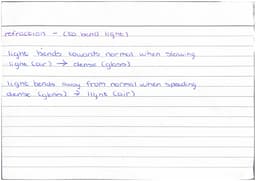 refraction - (to bend light)
light bends towards normal when slowing
light (air) → dense (glass)
light bends away from normal when speeding
dense (glass) → light (air)